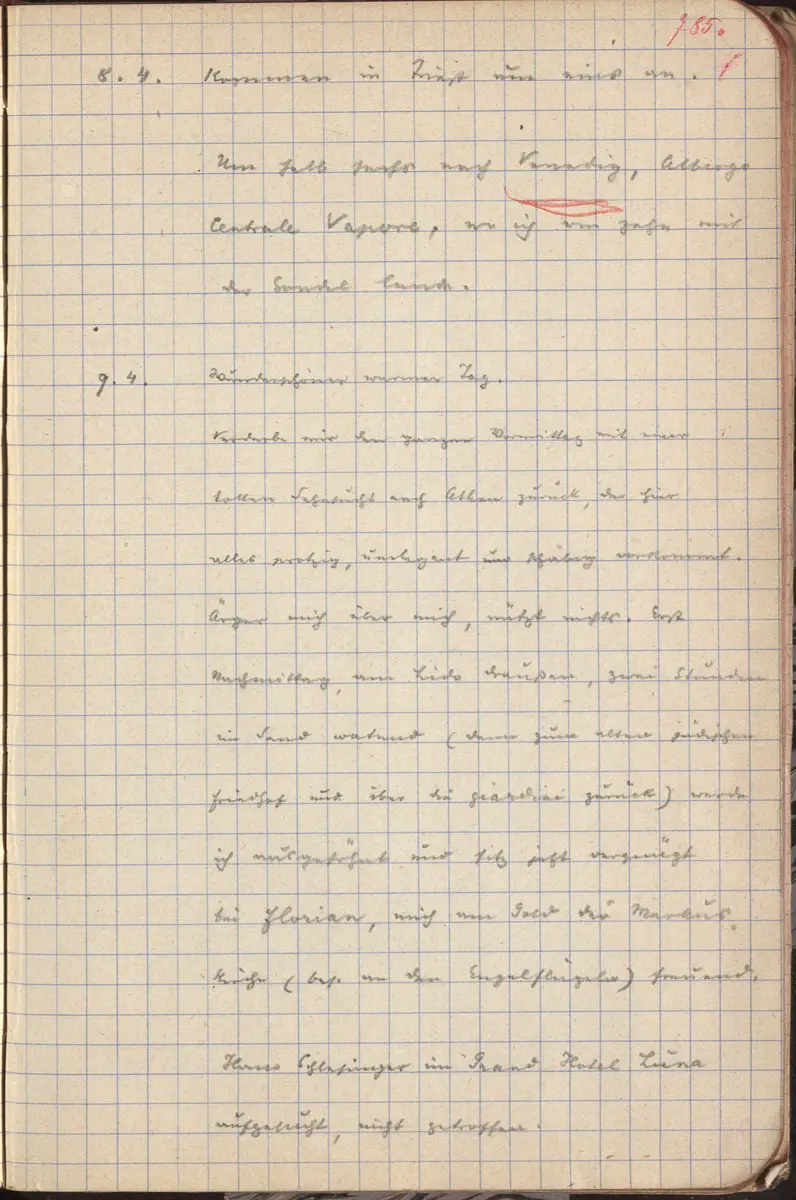 785.
8. 4. Kommen in Triest um eins an.
Um halb sechs nach Venedig, Albergo
Centrale Vapore, wo ich um zehn mit
der Gondel lande.
9. 4. Wunderschöner warmer Tag.
Verderbe mir den ganzen Vormittag mit einer
tollen Sehnsucht nach Athen zurück, der hier
alles protzig, unelegant und schäbig vorkommt.
Ärger mich über mich, nützt nichts. Erst
Nachmittag, am Lido draußen, zwei Stunden
im Sand watend (dann zum alten jüdischen
Friedhof und über die giardini zurück) werde
ich ausgesöhnt und sitz jetzt vergnügt
bei Florian, mich am Gold der Markus-
kirche (bes. an den Engelflügeln) freuend.
Hans Schlesinger im Grand Hotel Luna
aufgesucht, nicht getroffen.